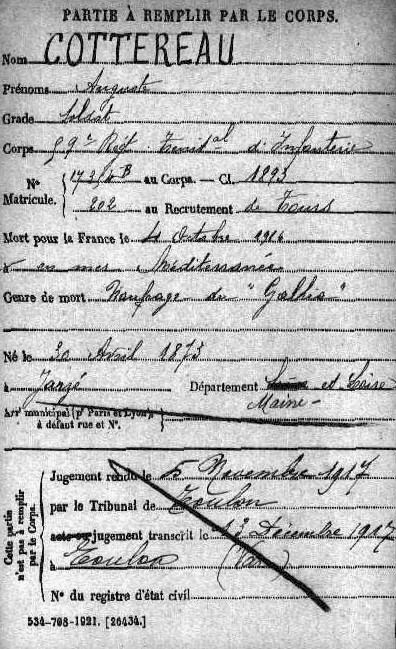 PARTIE À REMPLIR PAR LE CORPS.
Nom COTTEREAU
Prénoms Auguste
Grade Soldat
Corps 59e Regt Territal d'Infanterie
N° Matricule. au Corps. — Cl. 1893
202 au Recrutement de Tours
Mort pour la France le 4 Octobre 1916
en mer Méditerranée
Genre de mort Naufrage du "Gallia"
Né le 30 Avril 1873
à Jarzé Département et Loire
Maine-
Arr' municipal (p' Paris et Lyon), à défaut rue et N°.
Cette partie n'est pas à remplir par le Corps.
Jugement rendu le 5 Novembre 1917
par le Tribunal de Toulon
acte ou jugement transcrit le Décembre 1917
à Toulon (Var)
N° du registre d'état civil
534-708-1921. [26434.]